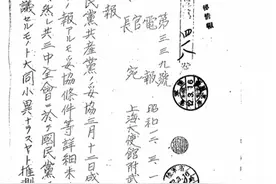 第三三九號
昭和
電報
上海大使館附武
官 宛
報
民黨共產黨ノ妥協三月十二日成
ノ報アルモ妥協條件等詳細未
レ共三中全會ニ於テ國民黨
議セルモノト大同小異ナラスヤト推測